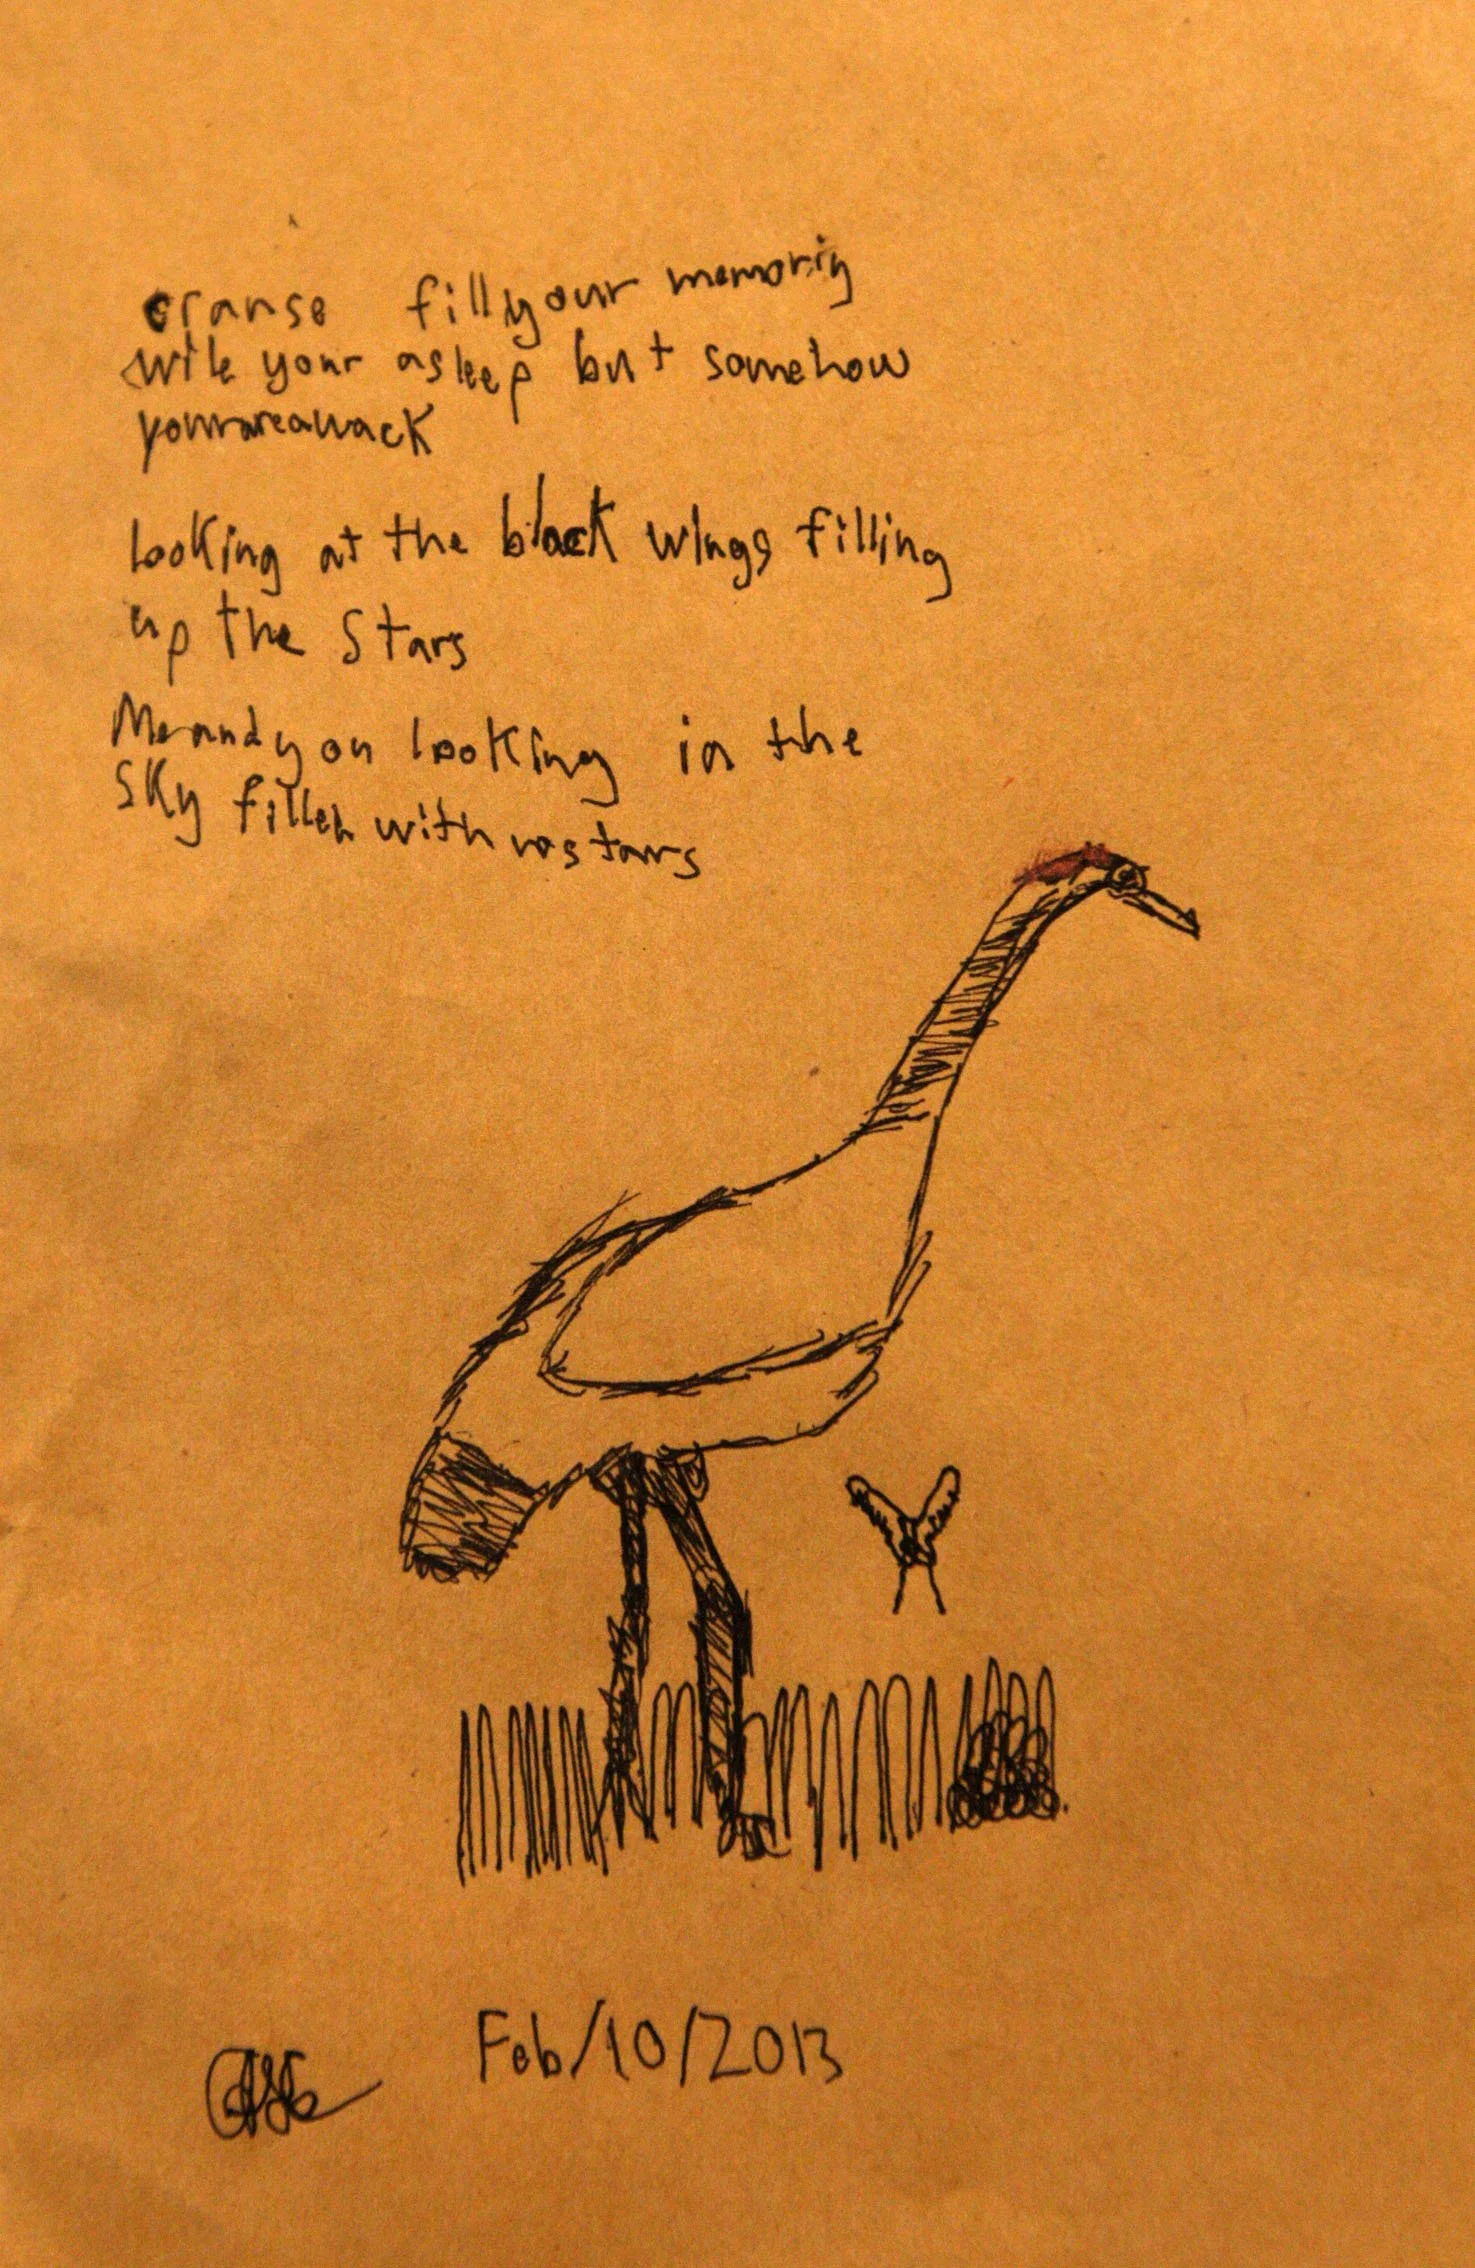 cranse fill your memoriy
wile your asleep but somehow
youareawack
Looking at the black wings filling
up the Stars
Me and you looking in the
Sky filled with no stars
Feb/10/2013